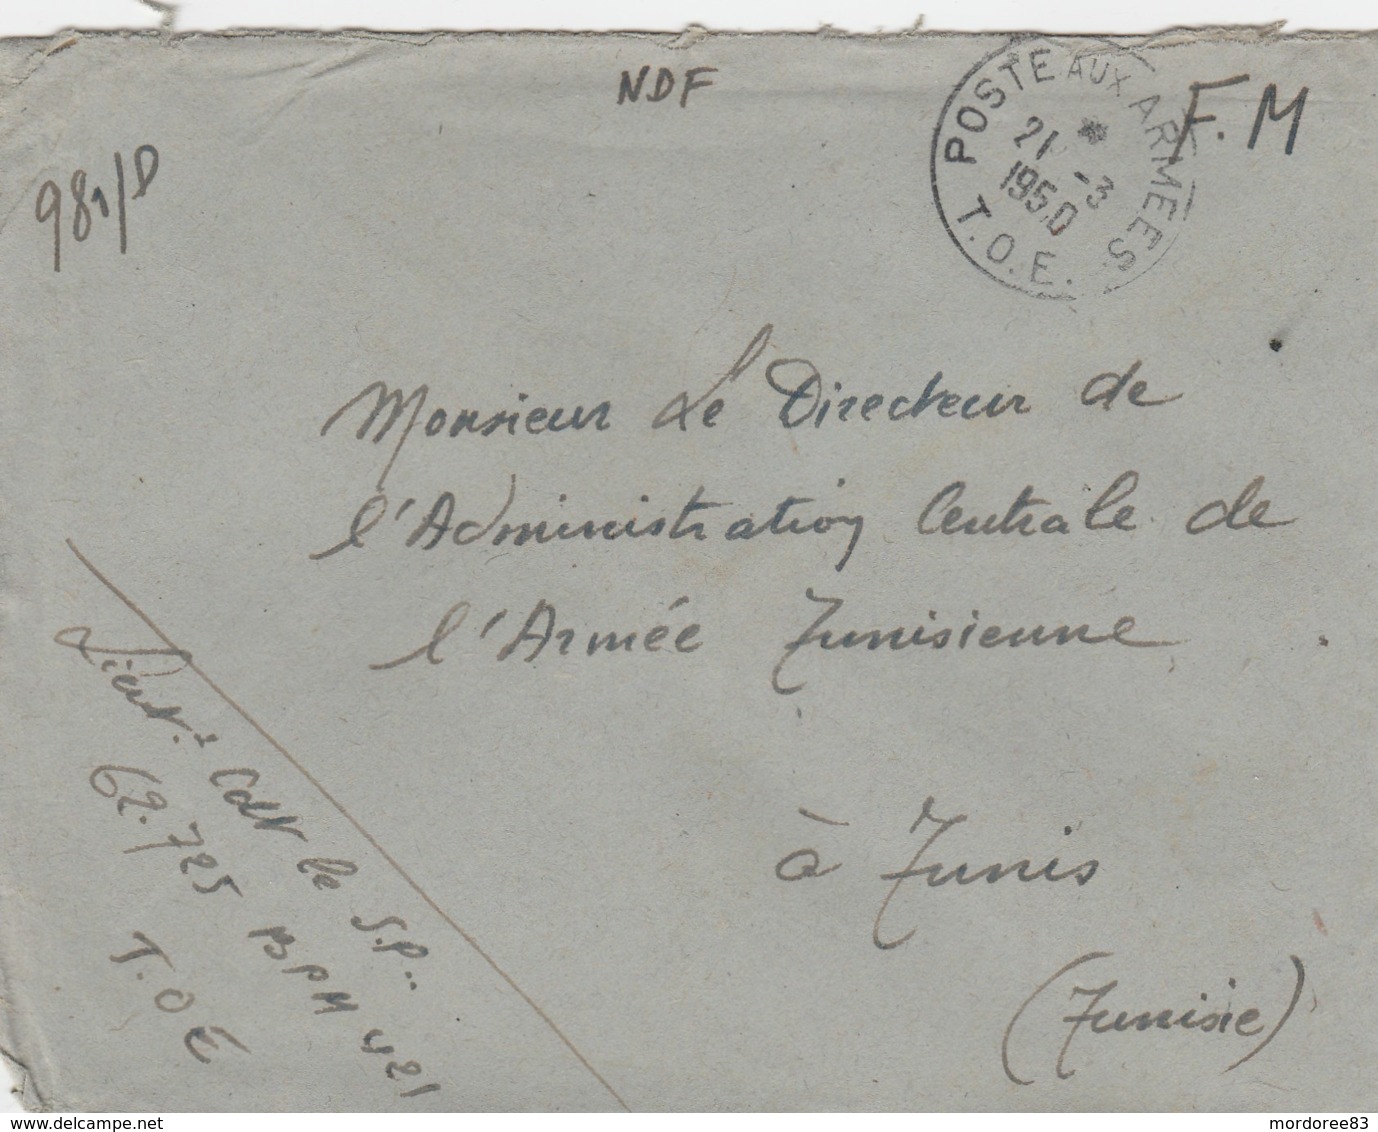 NDF
F.M
981/D
POSTE AUX ARMEES
21 -3
1950
T.O.E.
Monsieur Le Directeur de
l'Administration Centrale de
l'Armée Tunisienne
à Tunis
(Tunisie)
Lieut.t Cdt le S.P..
62.725 BPM 421
T.O E
delcampe.net
mordoree83